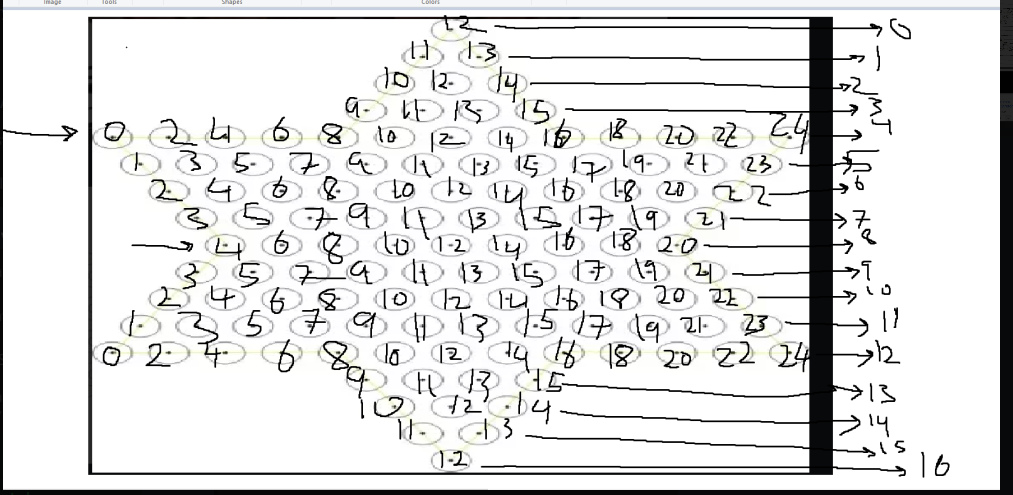 Image Tools Shapes Colors
12 0
11 13 1
10 12 14 2
9 11 13 15 3
0 2 4 6 8 10 12 14 16 18 20 22 24 4
1 3 5 7 9 11 13 15 17 19 21 23 5
2 4 6 8 10 12 14 16 18 20 22 6
3 5 7 9 11 13 15 17 19 21 7
4 6 8 10 12 14 16 18 20 8
3 5 7 9 11 13 15 17 19 21 9
2 4 6 8 10 12 14 16 18 20 22 10
1 3 5 7 9 11 13 15 17 19 21 23 11
0 2 4 6 8 10 12 14 16 18 20 22 24 12
9 11 13 15 13
10 12 14 14
11 13 15
12 16